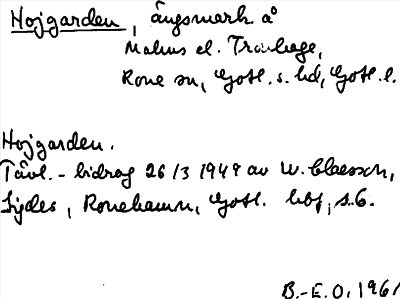 Hojgarden, ängsmark å
Malms el. Trävhage,
Rone sn, Gotl. s. hd, Gotl. l.
Hojgarden.
Tävl.-bidrag 26/3 1949 av W. Claesson,
Sigdes, Ronehamn, Gotl. hbf, s. 6.
B.-E. O, 1961